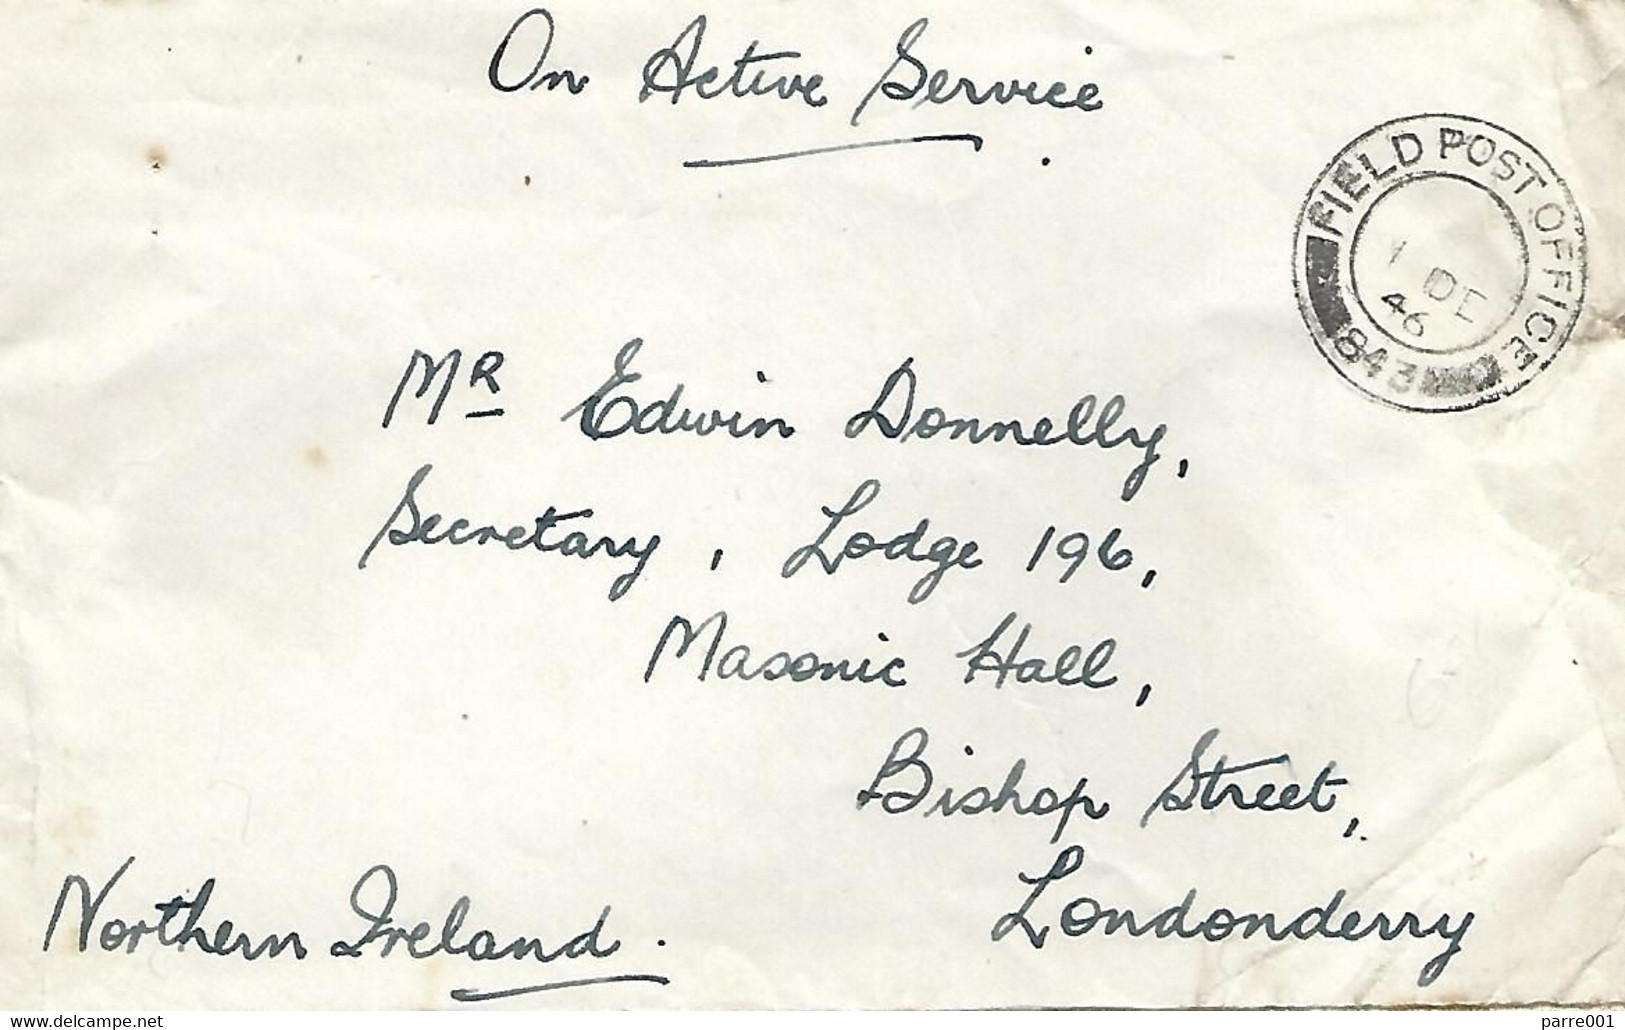 On Active Service
FIELD POST OFFICE
1 DE
46
843
MR Edwin Donnelly,
Secretary, Lodge 196,
Masonic Hall,
Bishop Street,
Londonderry
Northern Ireland.
www.delcampe.net
parre001